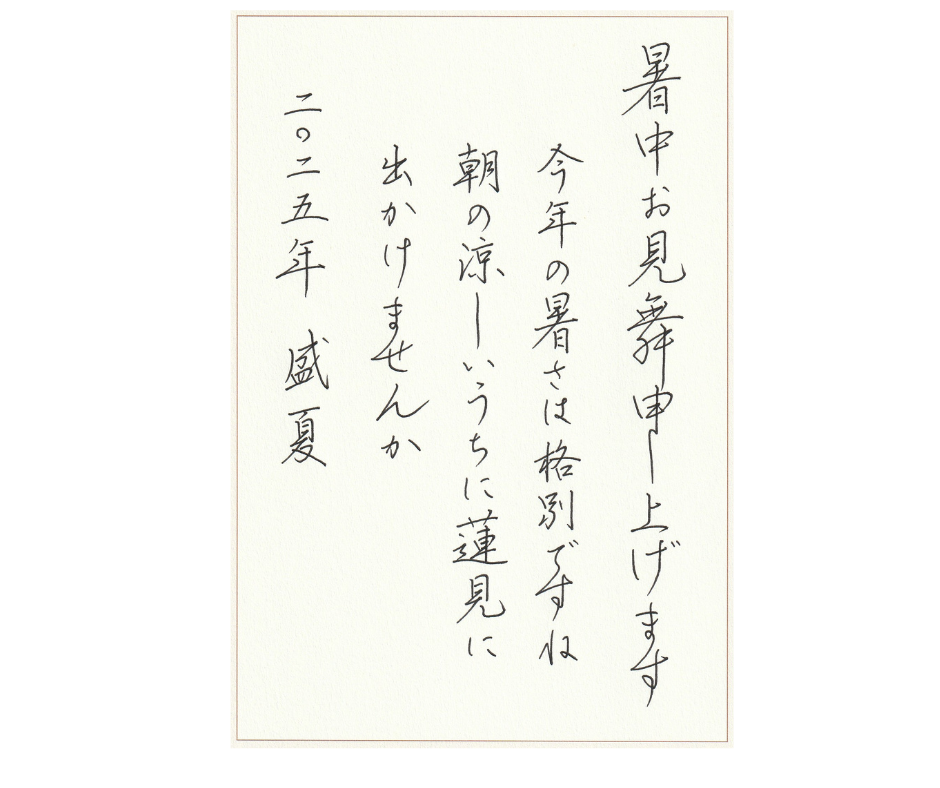 暑中お見舞申し上げます
今年の暑さは格別ですね
朝の涼しいうちに蓮見に
出かけませんか
二〇二五年 盛夏